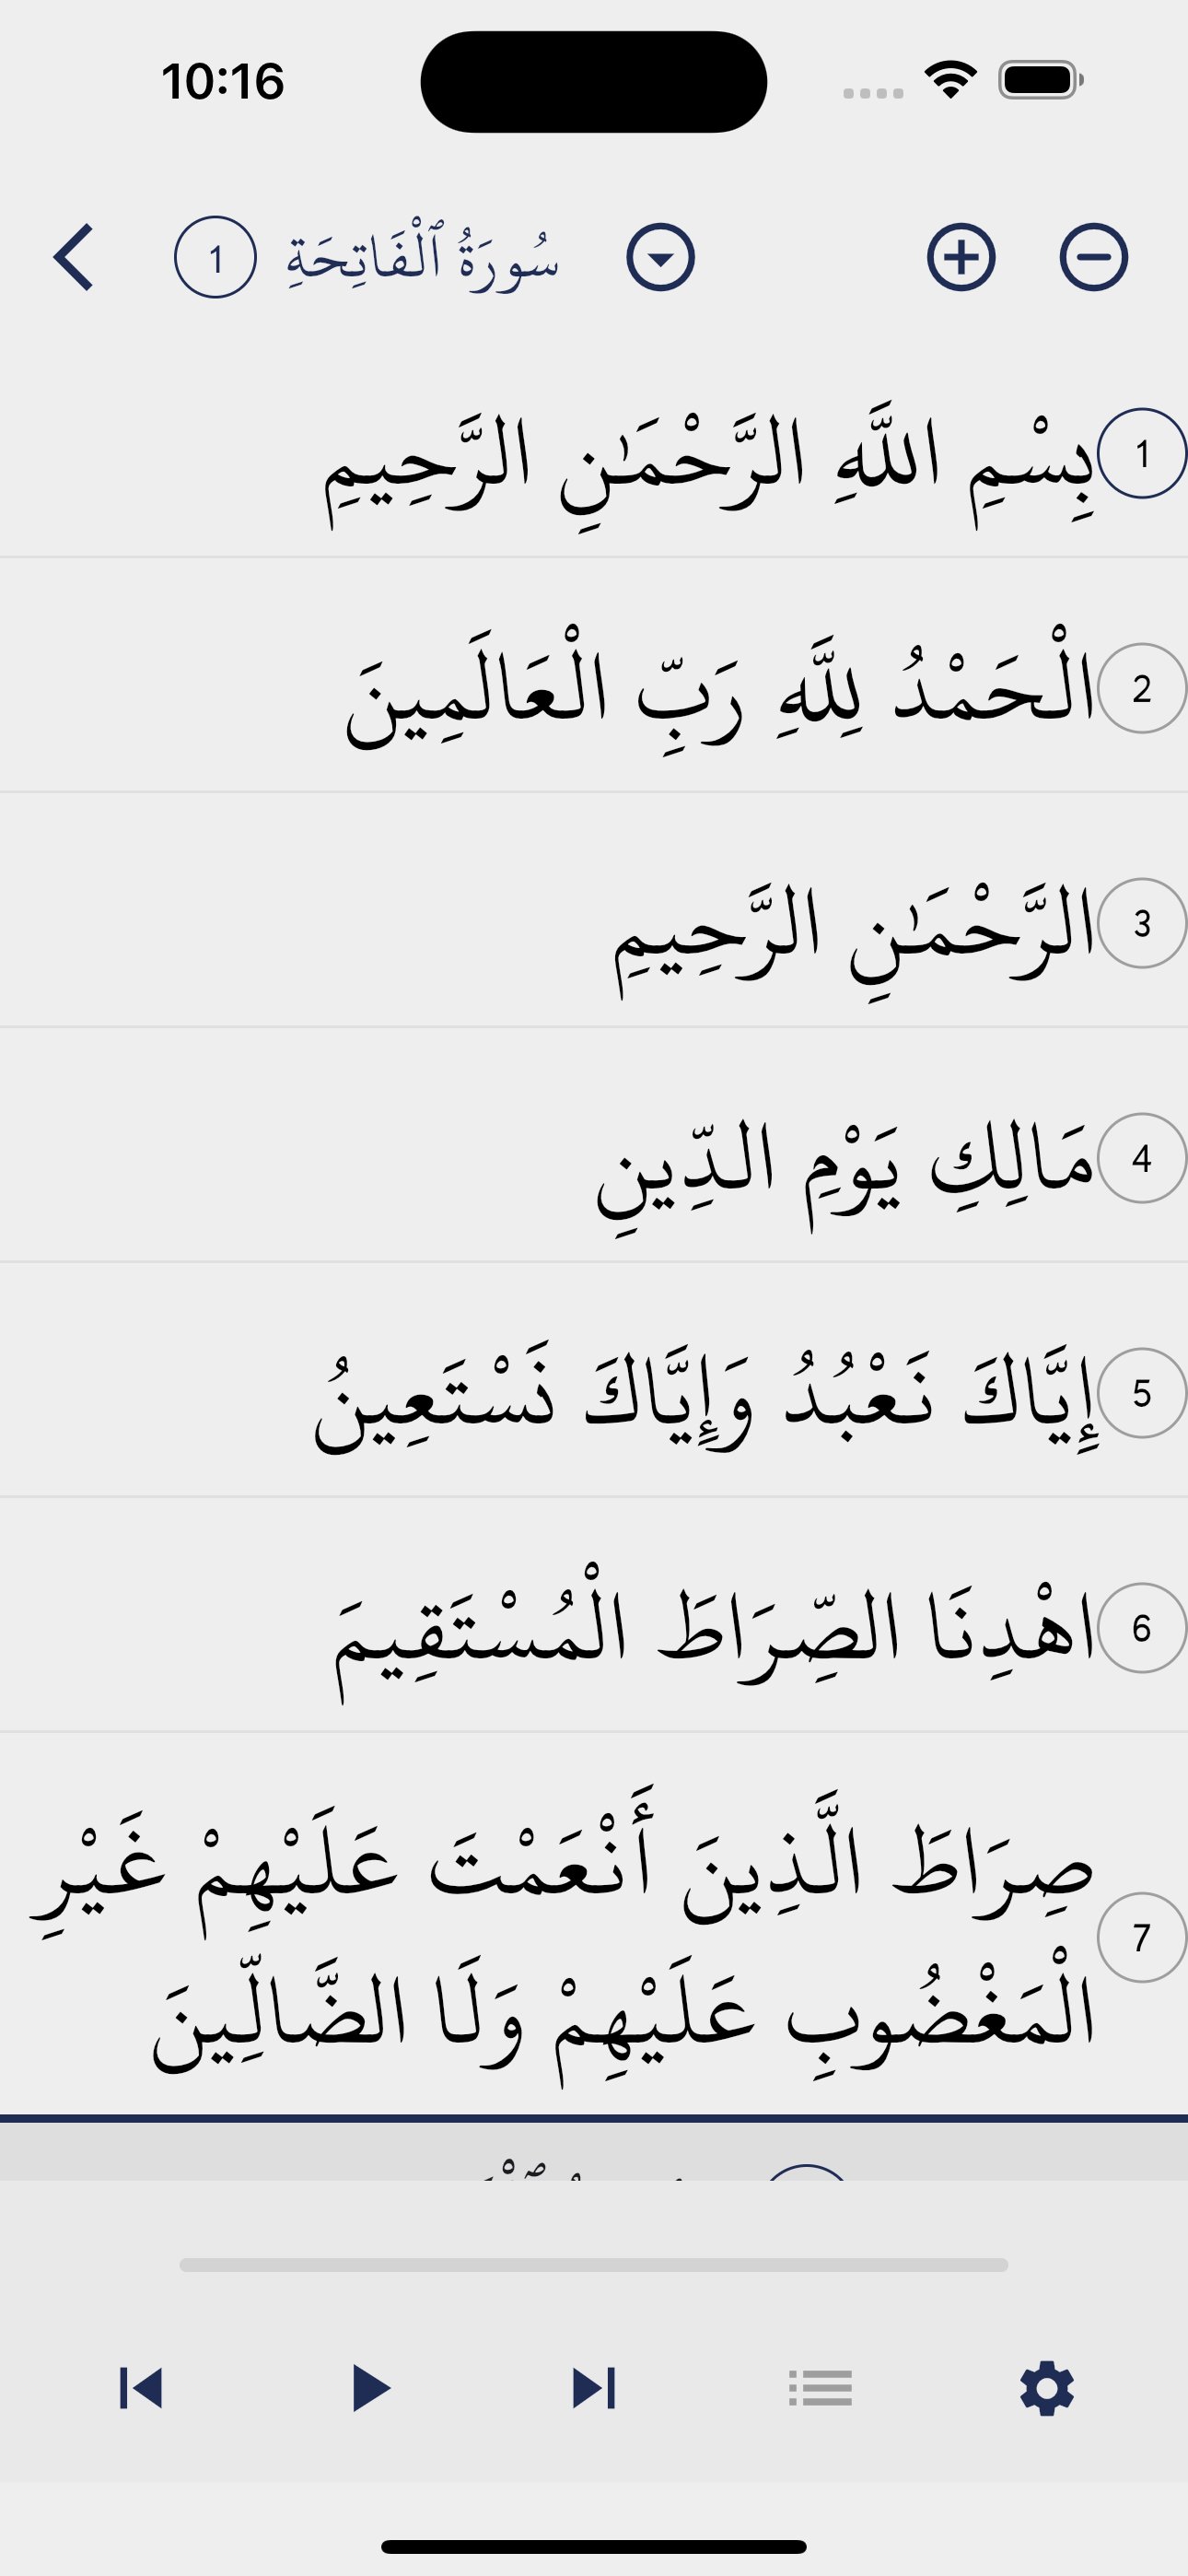 10:16
سُورَةُ ٱلْفَاتِحَةِ 1
1 بِسْمِ اللَّهِ الرَّحْمَٰنِ الرَّحِيمِ
2 الْحَمْدُ لِلَّهِ رَبِّ الْعَالَمِينَ
3 الرَّحْمَٰنِ الرَّحِيمِ
4 مَالِكِ يَوْمِ الدِّينِ
5 إِيَّاكَ نَعْبُدُ وَإِيَّاكَ نَسْتَعِينُ
6 اهْدِنَا الصِّرَاطَ الْمُسْتَقِيمَ
7 صِرَاطَ الَّذِينَ أَنْعَمْتَ عَلَيْهِمْ غَيْرِ
الْمَغْضُوبِ عَلَيْهِمْ وَلَا الضَّالِّينَ